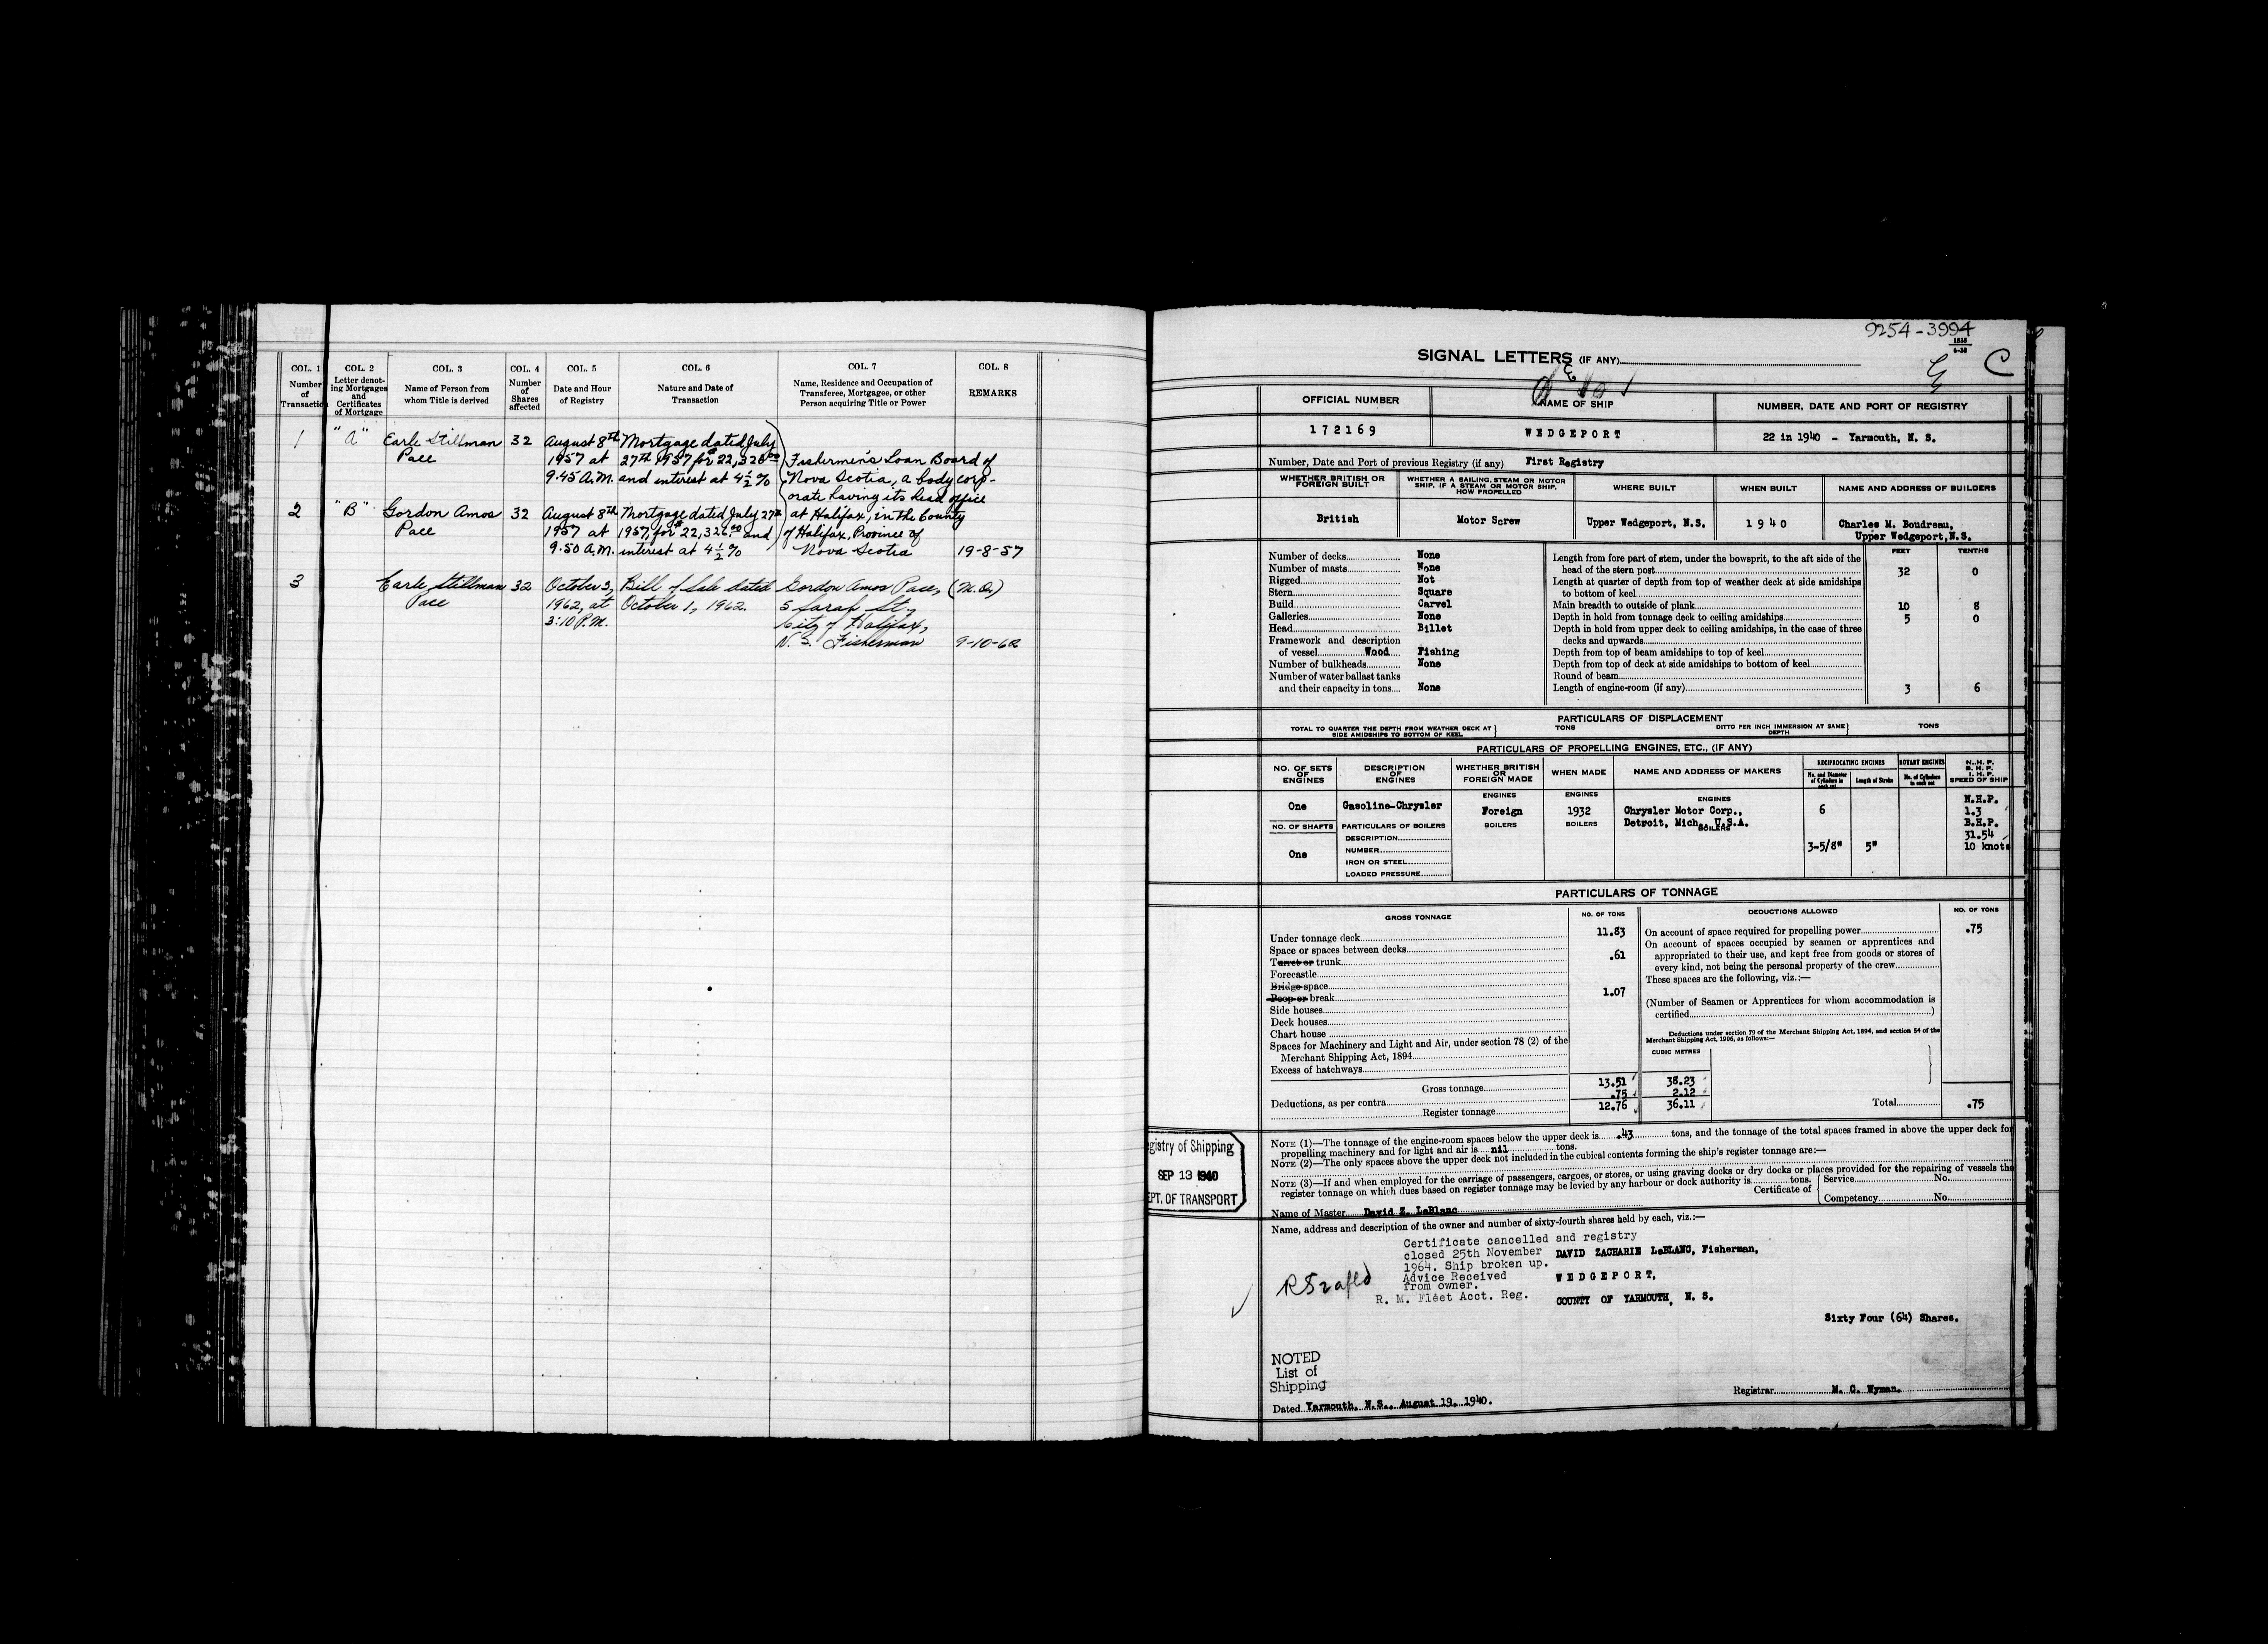 COL. 1 COL. 2 COL. 3 COL. 4 COL. 5 COL. 6 COL. 7 COL. 8
Number of Transaction
Letter denoting Mortgages and Certificates of Mortgage
Name of Person from whom Title is derived
Number of Shares affected
Date and Hour of Registry
Nature and Date of Transaction
Name, Residence and Occupation of Transferee, Mortgagee, or other Person acquiring Title or Power
REMARKS
1 "A" Earle Stillman 32 August 8th Mortgage dated July
Pace 1957 at 27th 1957 for $22,326.00 Fishermen's Loan Board of
9.45 A.M. and interest at 4½% Nova Scotia, a body corp-
orate having its head office
2 "B" Gordon Amos 32 August 8th Mortgage dated July 27th at Halifax, in the County
Pace 1957 at 1957, for $22,326.00 and of Halifax, Province of
9.50 A.M. interest at 4½% Nova Scotia 19-8-57
3 Earle Stillman 32 October 3, Bill of Sale dated Gordon Amos Pace, (M.O.)
Pace 1962, at October 1, 1962. 5 Sarah St,
3:10 P.M. City of Halifax,
N. S. Fisherman 9-10-62
9254-3994
1535
6-38
SIGNAL LETTERS (IF ANY)
C
OFFICIAL NUMBER NAME OF SHIP NUMBER, DATE AND PORT OF REGISTRY
172169 WEDGEPORT 22 in 1940 - Yarmouth, N. S.
Number, Date and Port of previous Registry (if any) First Registry
WHETHER BRITISH OR FOREIGN BUILT
WHETHER A SAILING, STEAM OR MOTOR SHIP, IF A STEAM OR MOTOR SHIP, HOW PROPELLED
WHERE BUILT WHEN BUILT NAME AND ADDRESS OF BUILDERS
British Motor Screw Upper Wedgeport, N.S. 1940 Charles M. Boudreau,
Upper Wedgeport, N.S.
FEET TENTHS
Number of decks None
Number of masts None
Rigged Not
Stern Square
Build Carvel
Galleries None
Head Billet
Framework and description
of vessel Wood Fishing
Number of bulkheads None
Number of water ballast tanks
and their capacity in tons None
Length from fore part of stem, under the bowsprit, to the aft side of the
head of the stern post 32 0
Length at quarter of depth from top of weather deck at side amidships
to bottom of keel
Main breadth to outside of plank 10 8
Depth in hold from tonnage deck to ceiling amidships 5 0
Depth in hold from upper deck to ceiling amidships, in the case of three
decks and upwards
Depth from top of beam amidships to top of keel
Depth from top of deck at side amidships to bottom of keel
Round of beam
Length of engine-room (if any) 3 6
PARTICULARS OF DISPLACEMENT
TOTAL TO QUARTER THE DEPTH FROM WEATHER DECK AT SIDE AMIDSHIPS TO BOTTOM OF KEEL TONS DITTO PER INCH IMMERSION AT SAME DEPTH TONS
PARTICULARS OF PROPELLING ENGINES, ETC., (IF ANY)
NO. OF SETS OF ENGINES
DESCRIPTION OF ENGINES
WHETHER BRITISH OR FOREIGN MADE
WHEN MADE
NAME AND ADDRESS OF MAKERS
RECIPROCATING ENGINES ROTARY ENGINES
No. and Diameter of Cylinders in each set
Length of Stroke
No. of Cylinders in each set
N.H.P.
B.H.P.
I.H.P.
SPEED OF SHIP
ENGINES ENGINES ENGINES
One Gasoline-Chrysler Foreign 1932 Chrysler Motor Corp., 6 N.H.P.
1.3
NO. OF SHAFTS PARTICULARS OF BOILERS BOILERS BOILERS Detroit, Mich., U.S.A. B.H.P.
BOILERS
31.54
One 3-5/8" 5" 10 knots
DESCRIPTION
NUMBER
IRON OR STEEL
LOADED PRESSURE
PARTICULARS OF TONNAGE
GROSS TONNAGE NO. OF TONS DEDUCTIONS ALLOWED NO. OF TONS
Under tonnage deck 11.83
Space or spaces between decks
Turret or trunk .61
Forecastle
Bridge space
Poop or break 1.07
Side houses
Deck houses
Chart house
Spaces for Machinery and Light and Air, under section 78 (2) of the
Merchant Shipping Act, 1894
Excess of hatchways
On account of space required for propelling power .75
On account of spaces occupied by seamen or apprentices and
appropriated to their use, and kept free from goods or stores of
every kind, not being the personal property of the crew
These spaces are the following, viz.:—
(Number of Seamen or Apprentices for whom accommodation is
certified)
Deductions under section 79 of the Merchant Shipping Act, 1894, and section 54 of the
Merchant Shipping Act, 1906, as follows:—
CUBIC METRES
Gross tonnage 13.51 38.23
Deductions, as per contra .75 2.12
Register tonnage 12.76 36.11 Total .75
NOTE (1)—The tonnage of the engine-room spaces below the upper deck is .43 tons, and the tonnage of the total spaces framed in above the upper deck for
propelling machinery and for light and air is nil tons.
NOTE (2)—The only spaces above the upper deck not included in the cubical contents forming the ship's register tonnage are:—
NOTE (3)—If and when employed for the carriage of passengers, cargoes, or stores, or using graving docks or dry docks or places provided for the repairing of vessels the
register tonnage on which dues based on register tonnage may be levied by any harbour or dock authority is tons.
Certificate of
Service No.
Competency No.
gistry of Shipping
SEP 13 1940
EPT. OF TRANSPORT
Name of Master David Z. LeBlanc
Name, address and description of the owner and number of sixty-fourth shares held by each, viz.:—
Certificate cancelled and registry
closed 25th November
1964. Ship broken up.
Advice Received
from owner.
R. M. Fleet Acct. Reg.
DAVID ZACHARIE LeBLANC, Fisherman,
WEDGEPORT,
COUNTY OF YARMOUTH, N. S.
Sixty Four (64) Shares.
NOTED
List of
Shipping
Registrar M. C. Wyman.
Dated Yarmouth, N.S., August 19, 1940.